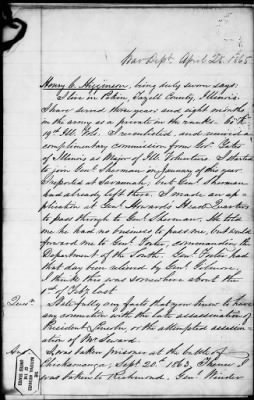 War Dept. April 28. 1865.
Henry C. Higginson, being duly sworn says:
I live in Pekin, Tazell County, Illinois.
I have served three years and eight months
in the army as a private in the ranks.
19th Ill. Vols. I reenlisted, and received a
complimentary commission from Gov. Yates
of Illinois as Major of Ill. Volunteers. I started
to join Genl. Sherman in January of this year.
I reported at Savannah, but Genl. Sherman
had already left there. I made an ap-
plication at Genl. Howard's Head Quarters
to pass through to Genl. Sherman. He told
me he had no business to pass me, but would
forward me to Genl. Foster, commanding the
Department of the South. Genl. Foster had
that day been relieved by Genl. Gilmore.
I think this was somewhere about the
1st of Feby last.
Ques. State fully any facts that you know to have
any connection with the late assassination of
President Lincoln, or the attempted assassin-
ation of Mr Seward.
Ans I was taken prisoner at the battle of
Chickamauga, Sept. 20th 1863, Thence I
was taken to Richmond. Genl. Winder